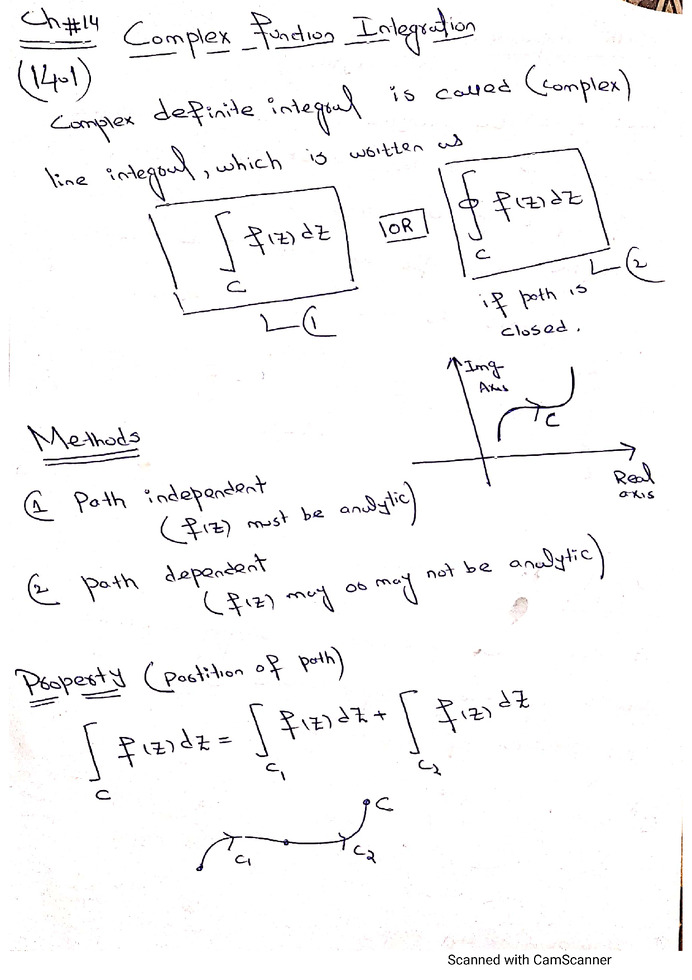 Ch#14 Complex Function Integration
(14.1)
Complex definite integral is called (complex)
line integral, which is written as
∫_C f(z) dz OR ∮_C f(z) dz
(1)
(2)
if path is
closed.
Img
Axis
C
Real
axis
Methods
(1) Path independent
(f(z) must be analytic)
(2) path dependent
(f(z) may or may not be analytic)
Property (partition of path)
∫_C f(z) dz = ∫_C₁ f(z) dz + ∫_C₂ f(z) dz
C
C₁ C₂
Scanned with CamScanner